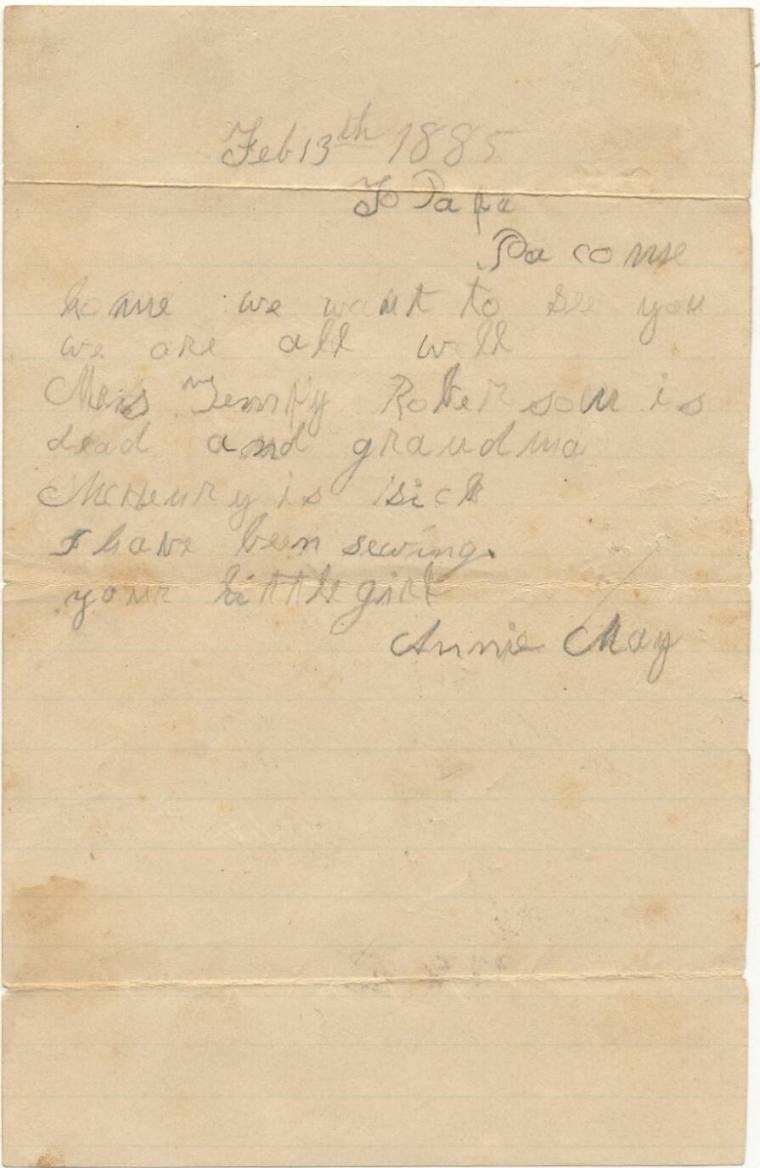 Feb 13th 1885
To Papa
Pa come
home we want to see you
we are all well
Mris Tempy Roberson is
dead and grandma
McHenry is sick
I have been sewing.
your little girl
Annie May